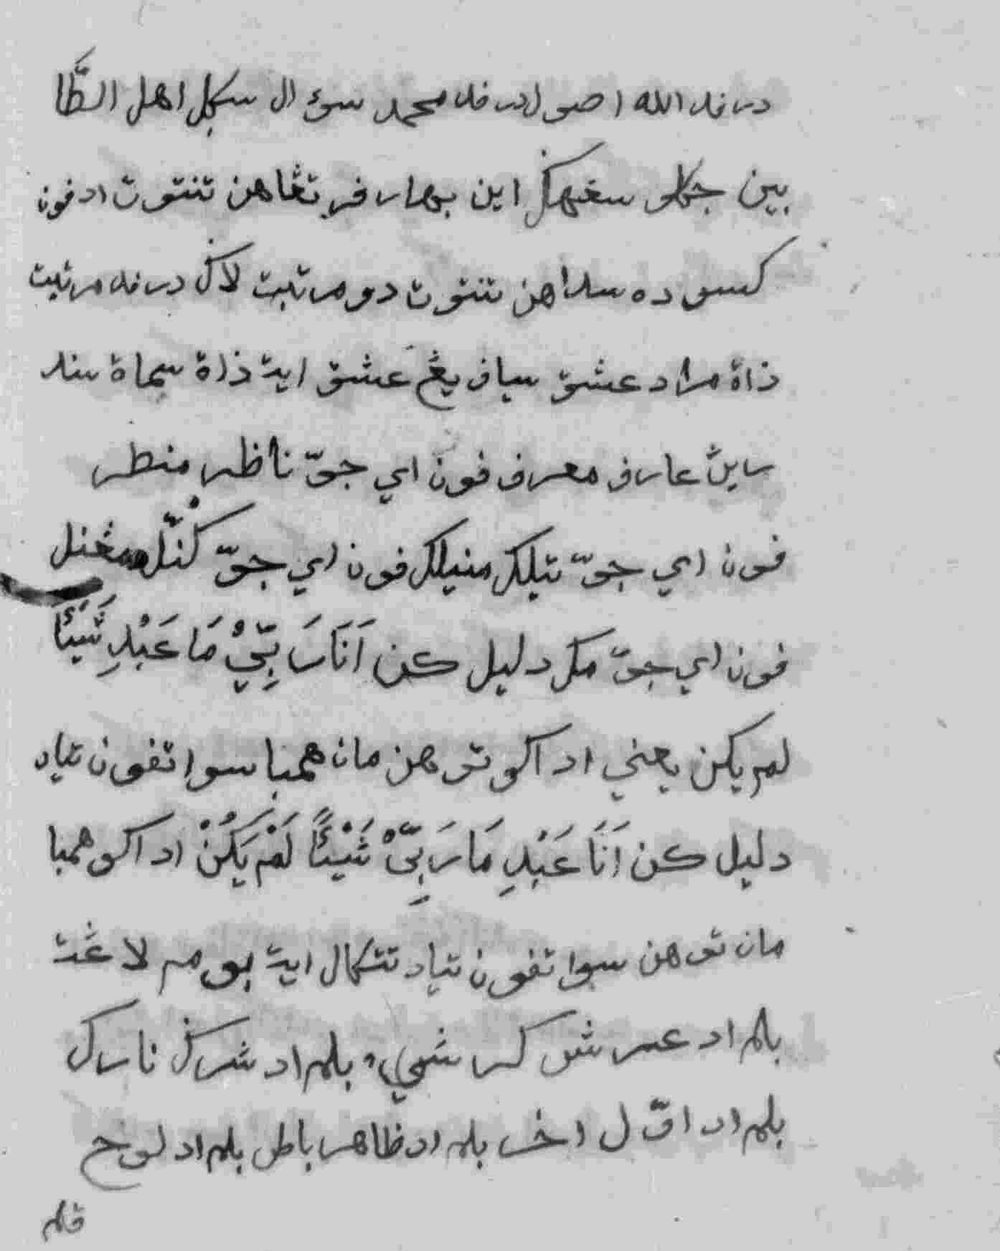 درفد الله اصول درفد محمد سوءال سكل اهل الطّا
بين جكلو سغهكن اين بهارو فرتڠاهن تنتوت اد فون
كسوده سداهن تنتوت دو مرتبت لاكن درفد مرتبت
ذاة مراد عشق سياف يڠ عشق ايت ذاة سماة سند
عارف معرف فون اي جوّ ناظر منطر
فون اي جوّ تيلك منيلك فون اي جوّ كنّل مڠنل
فون اي جوّ مك دليل كن اَنَا رَبِّيْ مَا عَبْدِ شَيْئًا
لم يكن يعني اد اكو توهن مان همبا سوا تفون تياد
دليل كن اَنَا عَبْدِ مَا رَبِّيْ شَيْئًا لَمْ يَكُنْ اد اكو همبا
مان توهن سوا تفون تياد تتكال ايت بوم لاڠت
بلم اد عرش كرسي بلم اد شرك نارك
بلم اد اوّل اخر بلم اد ظاهر باطن بلم اد لوح
قلم